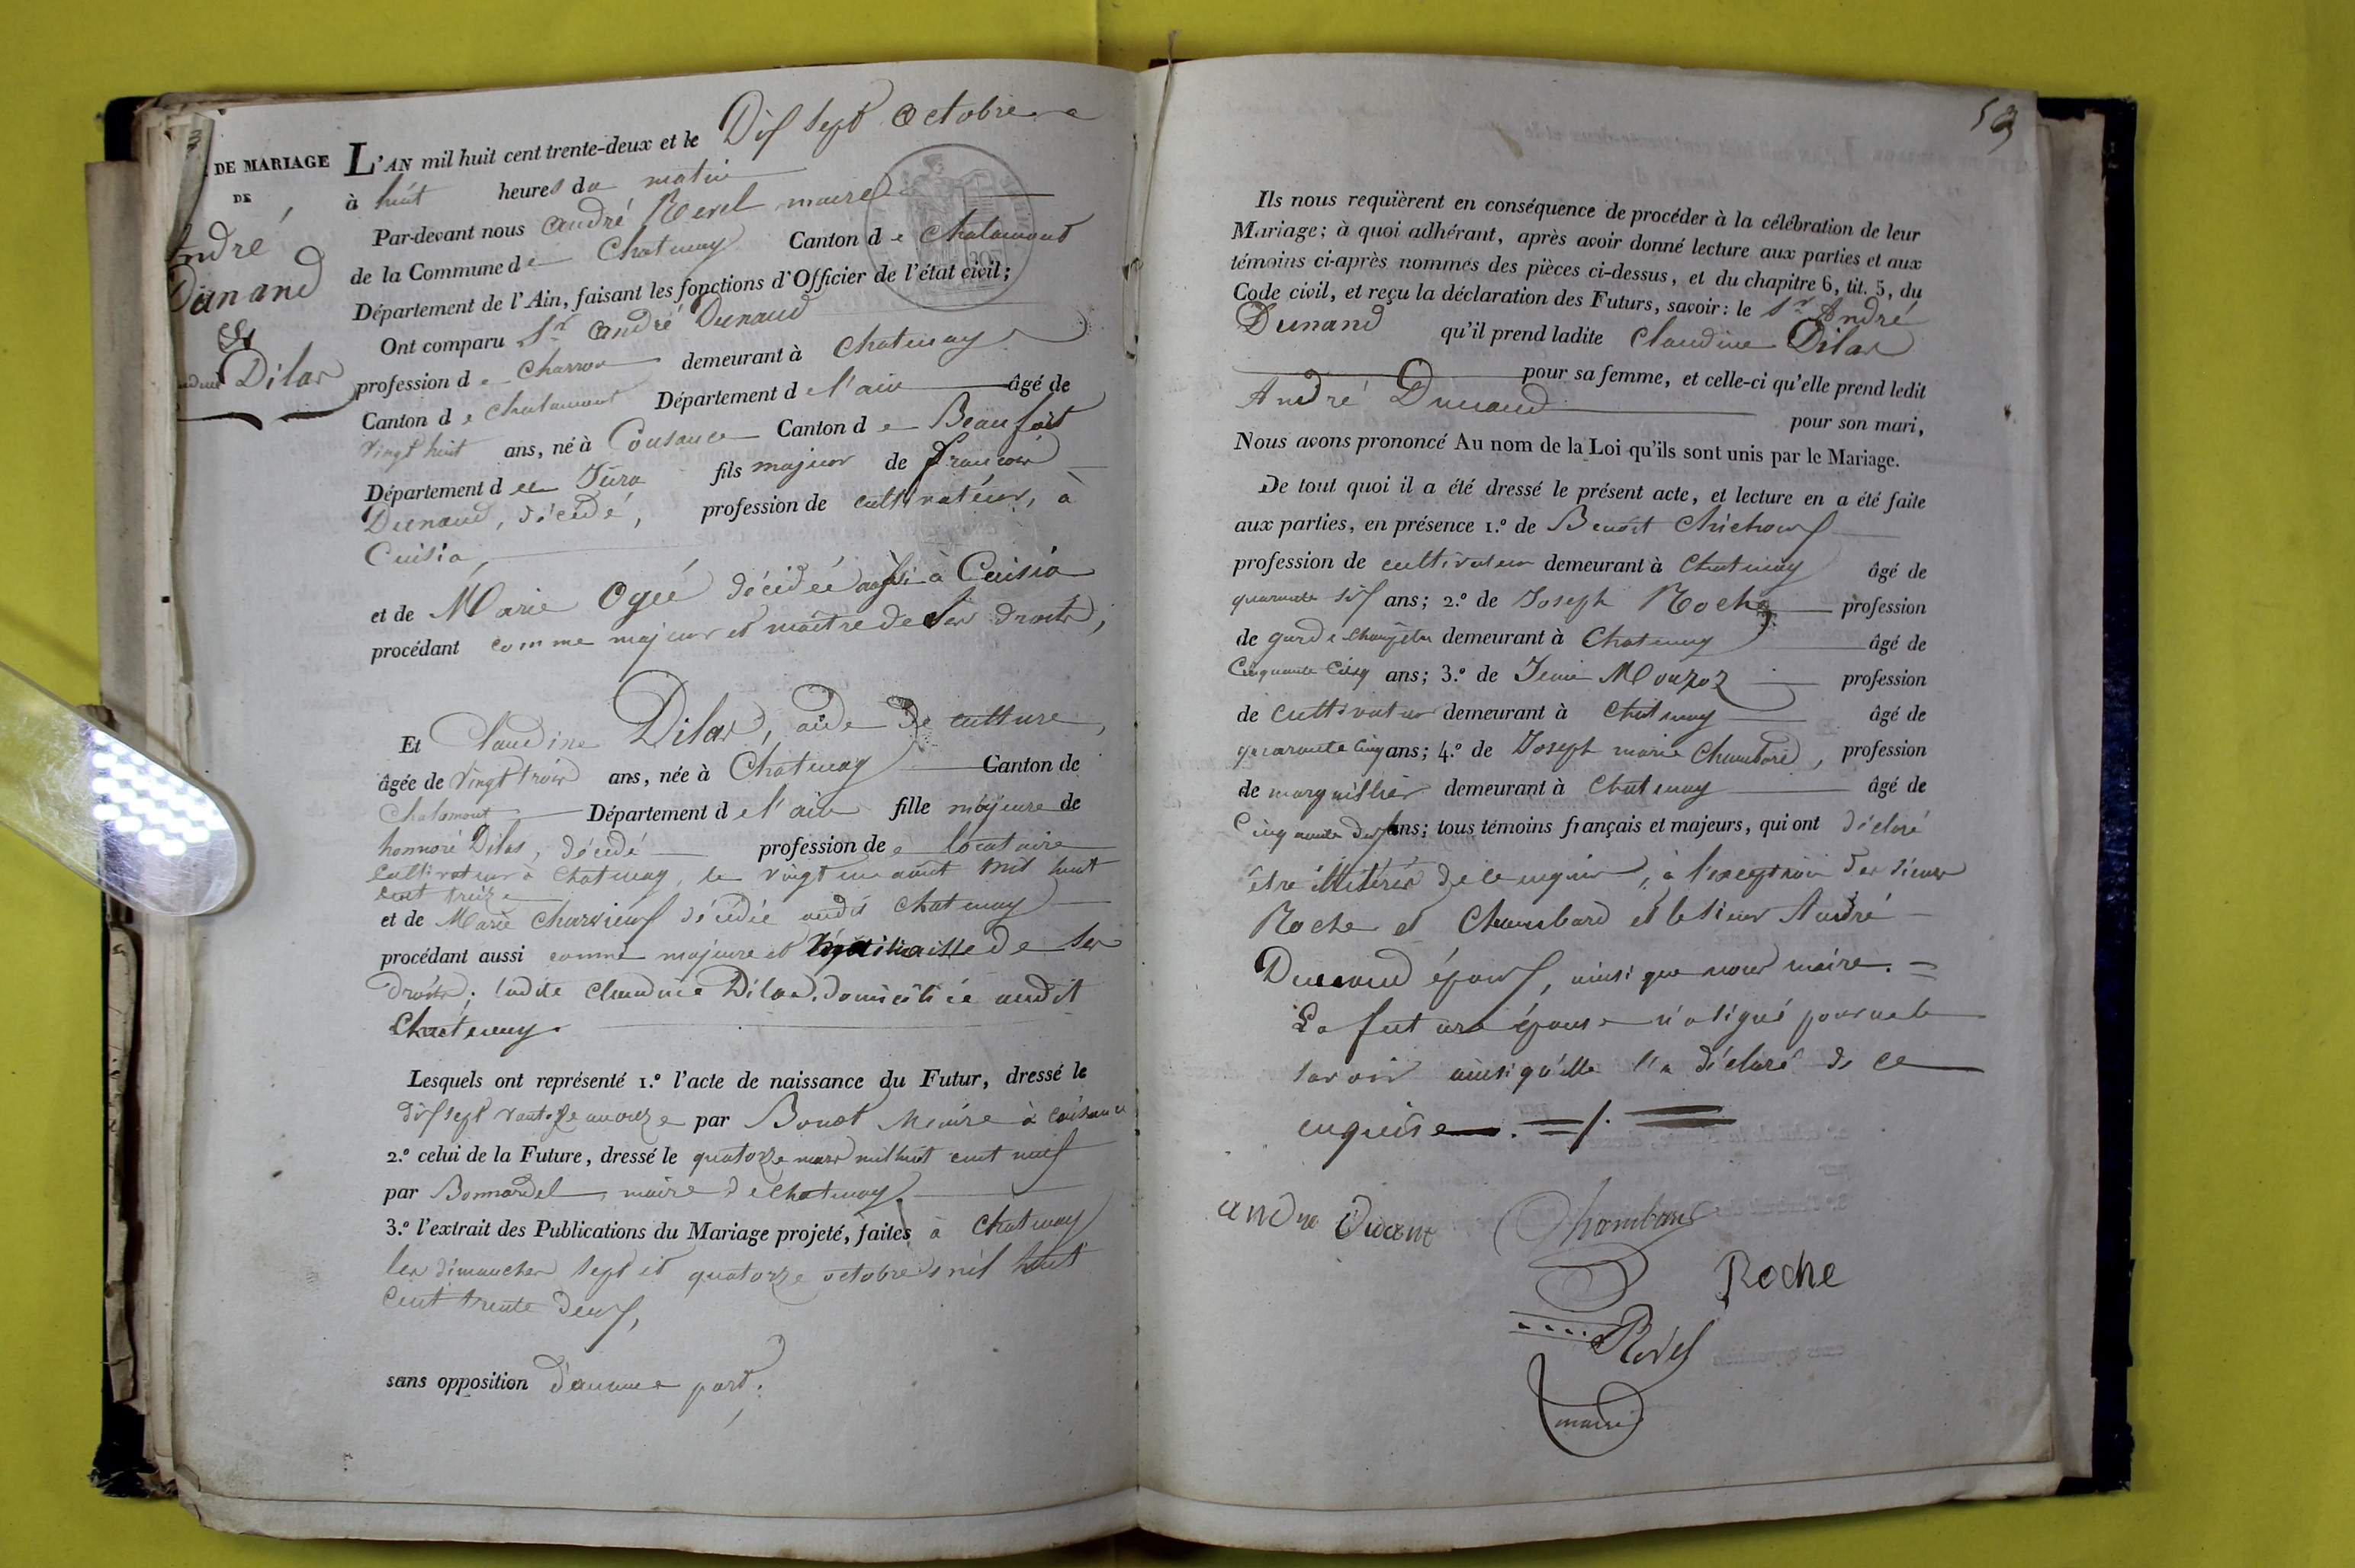 DE MARIAGE
DE
André
Dunand
Et
Dilas
L'AN mil huit cent trente-deux et le Dix sept Octobre
à huit heures du matin
Par-devant nous André Revel maire
de la Commune de Chatenay Canton de Chalamont
Département de l'Ain, faisant les fonctions d'Officier de l'état civil;
Ont comparu Sr André Dunand
profession de Charron demeurant à Chatenay
Canton de Chalamont Département de l'ain âgé de
vingt huit ans, né à Cousance Canton de Beaufort
Département du Jura fils majeur de françois
Dunand, décédé, profession de cultivateur, à
Cuisia,
et de Marie Ogié décédée aussi à Cuisia
procédant comme majeur et maître de ses droits,
Et Claudine Dilas, aide de culture,
âgée de vingt trois ans, née à Chatenay Canton de
Chalamont Département de l'ain fille majeure de
honnoré Dilas, décédé profession de locataire
cultivateur à Chatenay, le vingt un août mil huit
cent treize
et de Marie décédée audit Chatenay
procédant aussi comme majeure et de ses
droits; ladite Claudine Dilas domiciliée audit
Chatenay.
Lesquels ont représenté 1.º l'acte de naissance du Futur, dressé le
dix sept par maire à Cousance
2.º celui de la Future, dressé le quatorze mars mil huit cent neuf
par Bonnardel, maire de Chatenay.
3.º l'extrait des Publications du Mariage projeté, faites à Chatenay
les dimanches sept et quatorze octobre mil huit
cent trente deux,
sans opposition d'aucune part.
53
Ils nous requièrent en conséquence de procéder à la célébration de leur
Mariage; à quoi adhérant, après avoir donné lecture aux parties et aux
témoins ci-après nommés des pièces ci-dessus, et du chapitre 6, tit. 5, du
Code civil, et reçu la déclaration des Futurs, savoir: le Sr André
Dunand qu'il prend ladite Claudine Dilas
pour sa femme, et celle-ci qu'elle prend ledit
André Dunand pour son mari,
Nous avons prononcé Au nom de la Loi qu'ils sont unis par le Mariage.
De tout quoi il a été dressé le présent acte, et lecture en a été faite
aux parties, en présence 1.º de Benoit
profession de cultivateur demeurant à Chatenay âgé de
quarante six ans; 2.º de Joseph Roche profession
de garde champêtre demeurant à Chatenay âgé de
Cinquante Cinq ans; 3.º de profession
de cultivateur demeurant à Chatenay âgé de
quarante cinq ans; 4.º de Joseph marie Chambard, profession
de marguillier demeurant à Chatenay âgé de
Cinquante deux ans; tous témoins français et majeurs, qui ont déclaré
être illitérés de ce enquis, à l'exception des sieurs
Roche et Chambard et le sieur André
Dunand époux, ainsi que nous maire. =
La future épouse n'a signé pour ne le
savoir ainsi qu'elle l'a déclaré de ce
enquise
andre Chambard
Roche
Revel
maire